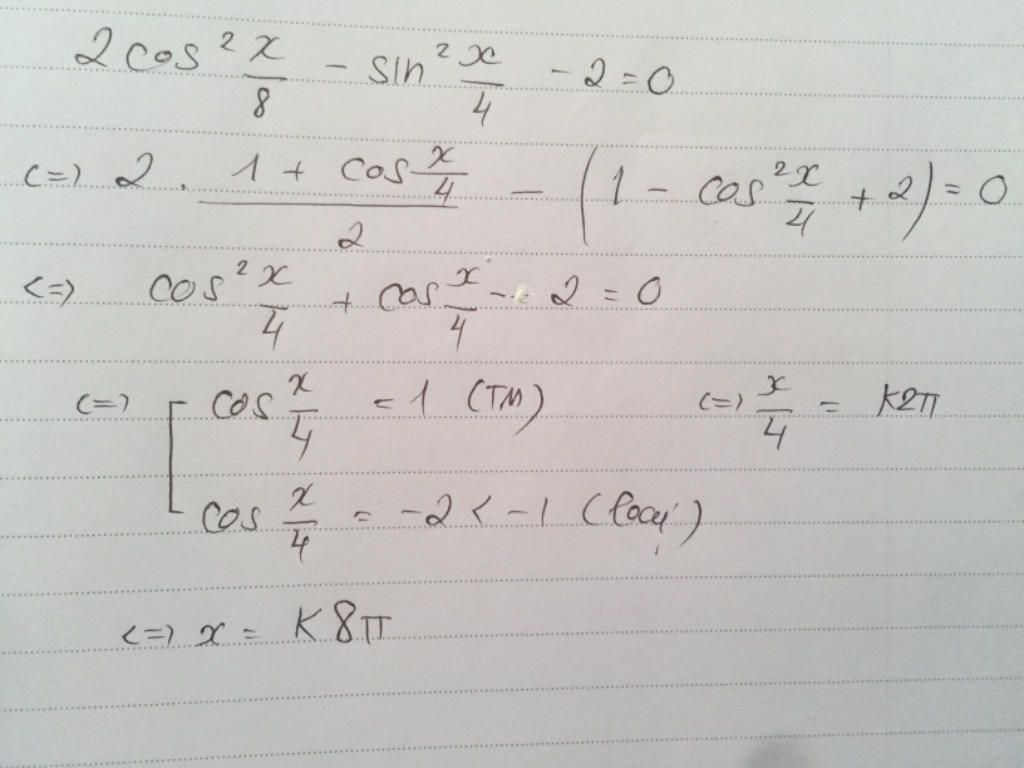 2cos² x/8 - sin² x/4 - 2 = 0
<=> 2 . (1 + cos x/4)/2 - (1 - cos² x/4 + 2) = 0
<=> cos² x/4 + cos x/4 - 2 = 0
<=> [ cos x/4 = 1 (TM) <=> x/4 = k2π
cos x/4 = -2 < -1 (loại)
<=> x = k8π